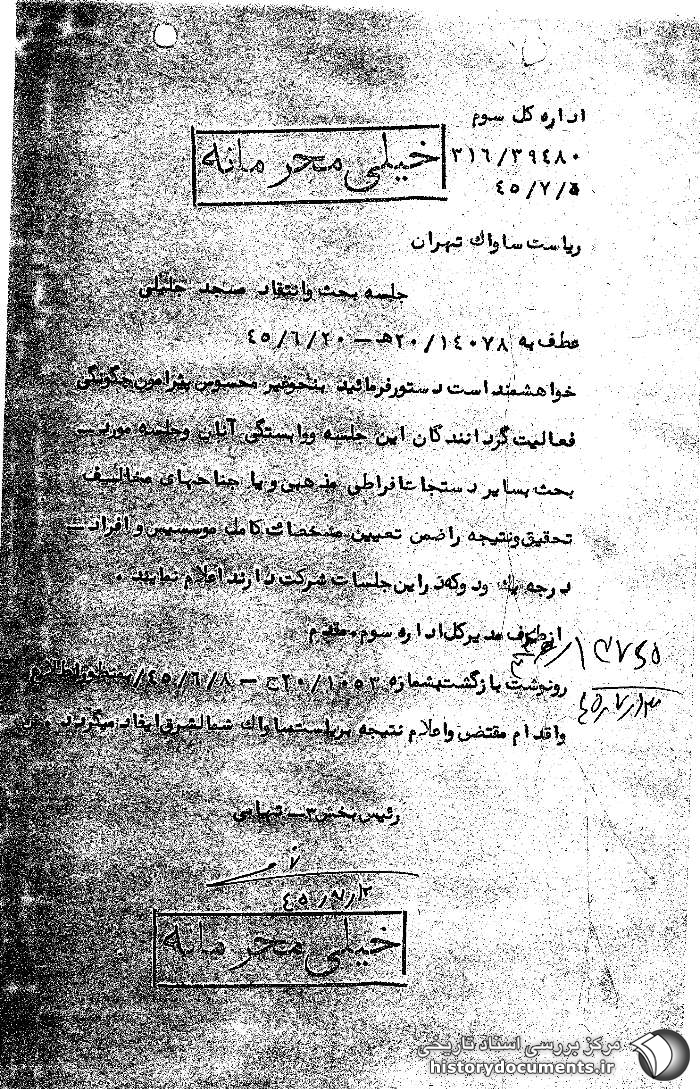 اداره کل سوم
خیلی محرمانه
٣١٦/٣٩٤٨٠
٤٥/٧/٥
ریاست ساواک تهران
جلسه بحث وانتقاد مسجد جلیلی
عطف به ٢٠/١٤٠٧٨هـ – ٤٥/٦/٢٠
خواهشمند است دستور فرمائید بنحو غیر محسوس پیرامون چگونگی
فعالیت گردانندگان این جلسه و وابستگی آنان وجلسه مورد
بحث بسایر دستجات افراطی مذهبی و یا جناحهای مخالف
تحقیق ونتیجه را ضمن تعیین مشخصات کامل موسسین و افراد
درجه یک و دو که در این جلسات شرکت دارند اعلام نمایند .
از طرف مدیرکل اداره سوم . مقدم
رونوشت بازگشت بشماره ٢٠/١٠٥٣ج – ٤٥/٦/٨ بمنظور اطلاع
واقدام مقتضی واعلام نتیجه بریاست ساواک شمالشرق ایفاد میگردد
رئیس بخش ٣ – تهامی
خیلی محرمانه
مرکز بررسی اسناد تاریخی
historydocuments.ir